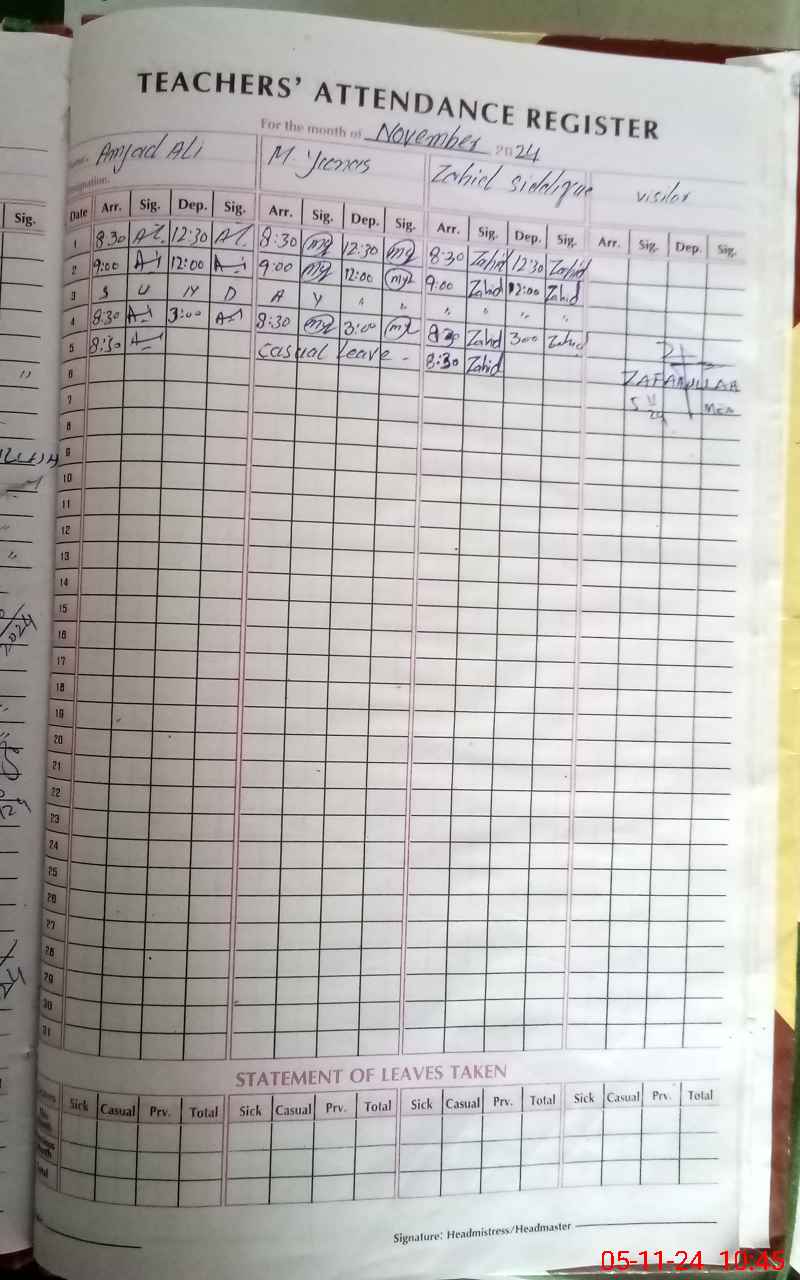 TEACHERS' ATTENDANCE REGISTER
For the month of November 2024
Amjad Ali M. Younas Zahid Siddique visitor
Sig. Date Arr. Sig. Dep. Sig. Arr. Sig. Dep. Sig. Arr. Sig. Dep. Sig. Arr. Sig. Dep. Sig.
1 8:30 12:30 8:30 12:30 8:30 Zahid 12:30 Zahid
2 9:00 12:00 9:00 12:00 9:00 Zahid 12:00 Zahid
3 S U N D A Y " " " " " "
4 8:30 3:00 8:30 3:00 8:30 Zahid 3:00 Zahid
5 8:30 Casual leave - 8:30 Zahid
6 ZAFARULLAH
7 5 11 24 MEA
8
9
10
11
12
13
14
15
16
17
18
19
20
21
22
23
24
25
26
27
28
29
30
31
STATEMENT OF LEAVES TAKEN
Sick Casual Prv. Total Sick Casual Prv. Total Sick Casual Prv. Total Sick Casual Prv. Total
Signature: Headmistress/Headmaster
05-11-24 10:45